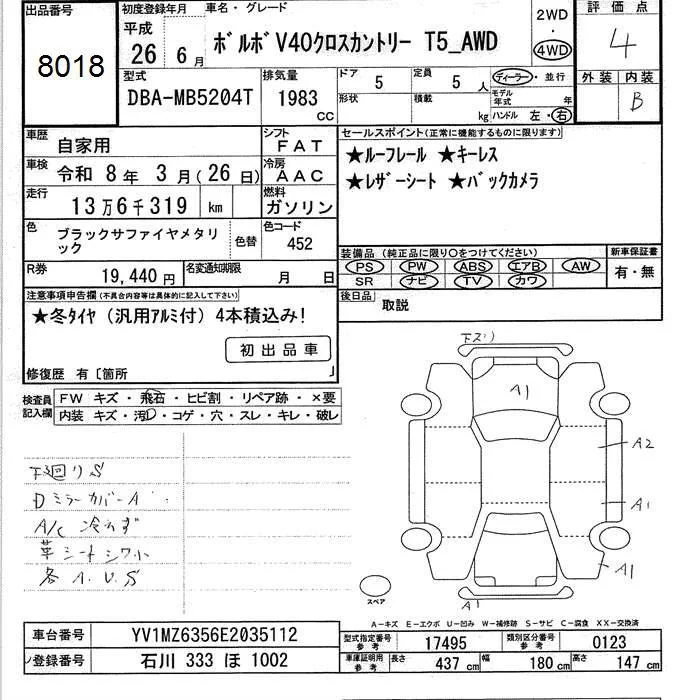 出品番号
8018
初度登録年月
平成
26年 6月
車名・グレード
ボルボ V40クロスカントリー T5_AWD
2WD
・
4WD
評価点
4
外装 内装
B
型式
DBA-MB5204T
排気量
1983
CC
ドア 5
定員 5 人
形状
積載 kg
ディーラー・並行
モデル年式 年
ハンドル 左・右
車歴 自家用
シフト FAT
車検 令和 8年 3月(26日)
冷房 AAC
走行 13万6千319 km
燃料 ガソリン
色 ブラックサファイヤメタリック
色替
色コード 452
R券 19,440円
名変通知期限 月 日
セールスポイント(正常に機能するものに限ります)
★ルーフレール ★キーレス
★レザーシート ★バックカメラ
装備品(純正品に限り〇をつけてください)
PS PW ABS エアB AW
SR ナビ TV カワ
新車保証書
有・無
後日品 取説
注意事項申告欄(不具合内容等は具体的に記入して下さい)
★冬タイヤ(汎用アルミ付)4本積込み!
初出品車
修復歴 有〔箇所 〕
検査員記入欄
FW キズ・飛石・ヒビ割・リペア跡・×要
内装 キズ・汚レ・コゲ・穴・スレ・キレ・破レ
下廻りS
DミラーカバーA
A/C 冷えず
革シートシワ小
各A.U.S
下スリ
A1
A2
A1
A1
スペア
A-キズ E-エクボ U-凹み W-補修跡 S-サビ C-腐食 XX-交換済
車台番号 YV1MZ6356E2035112
登録番号 石川 333 ほ 1002
型式指定番号 参考 17495
類別区分番号 参考 0123
車庫証明用 参考 長さ 437 cm 幅 180 cm 高さ 147 cm